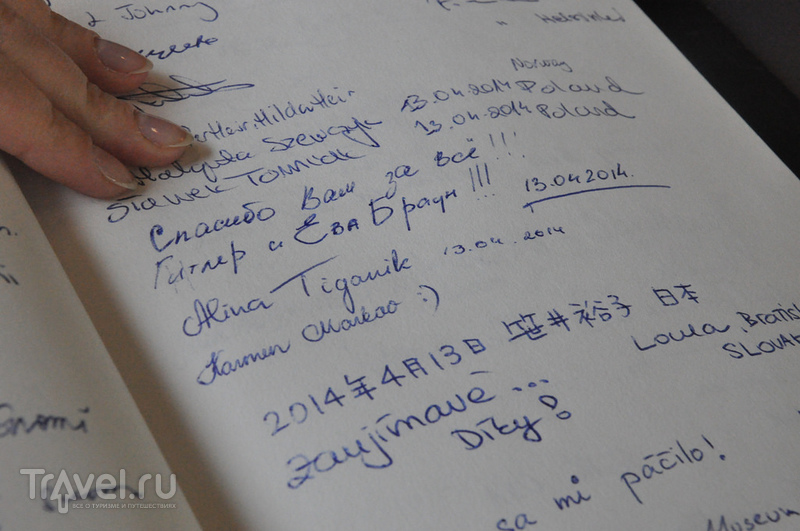 & Johnny
Helsinki
Norway
Hilda Heir
Szewczyk 13.04.2014 Poland
Sławek Tomczak 13.04.2014 Poland
Спасибо Вам за всё!!!
Гитлер и Ева Браун!!! 13.04.2014.
Alina Tiganik 13.04.2014
Karmen :)
2014年4月13日 笹井裕子 日本
Bratisl
SLOVAK
Zaujímavé...
Díky!
sa mi páčilo!
Museum
Travel.ru
ВСЕ О ТУРИЗМЕ И ПУТЕШЕСТВИЯХ